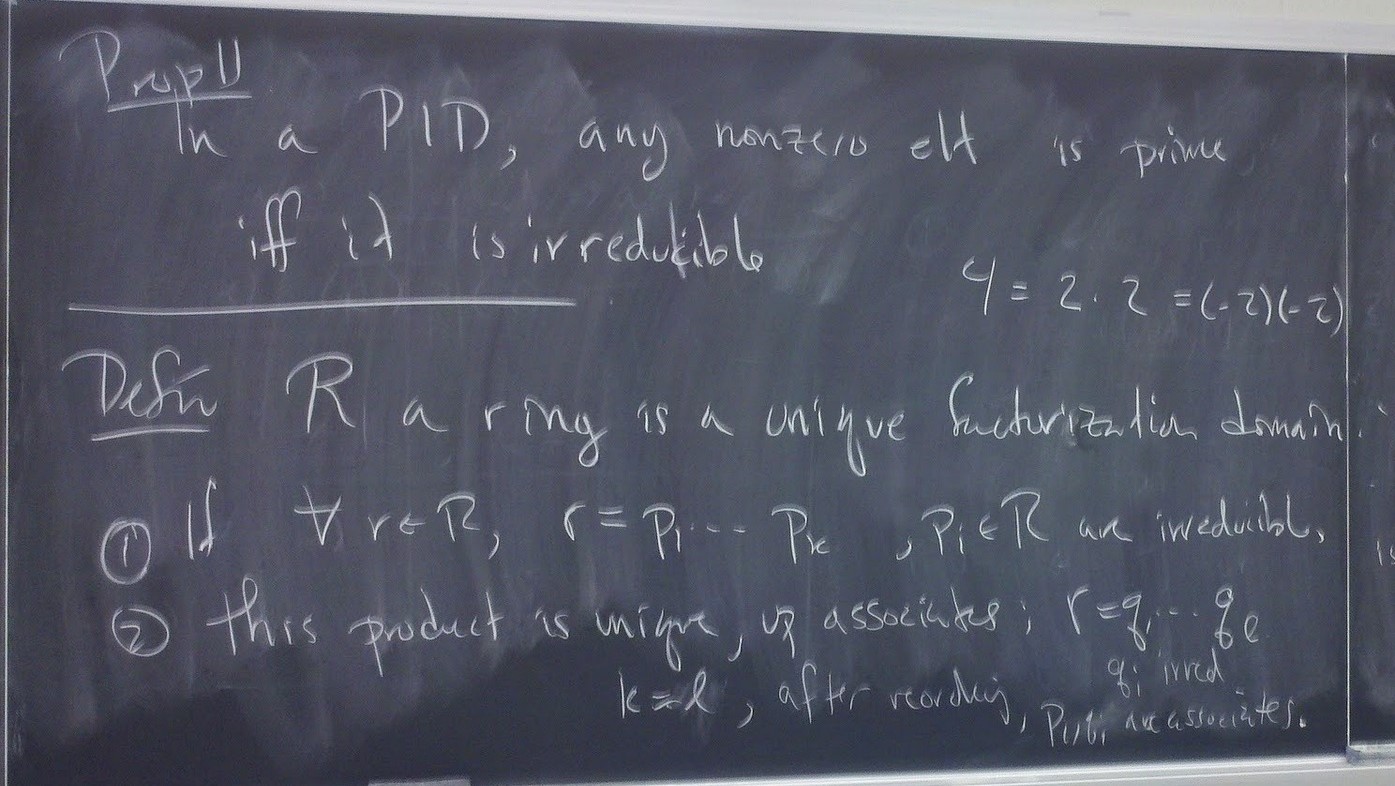 Prop 11
In a PID, any nonzero elt is prime
iff it is irreducible
4 = 2 · 2 = (-2)(-2)
Defn R a ring is a unique factorization domain.
① If ∀ r ∈ R, r = p₁ ··· pₖ , pᵢ ∈ R are irreducible,
② this product is unique, up associates; r = q₁ ··· qₗ
qᵢ irred
k = l, after reordering, pᵢ, qᵢ are associates.
is